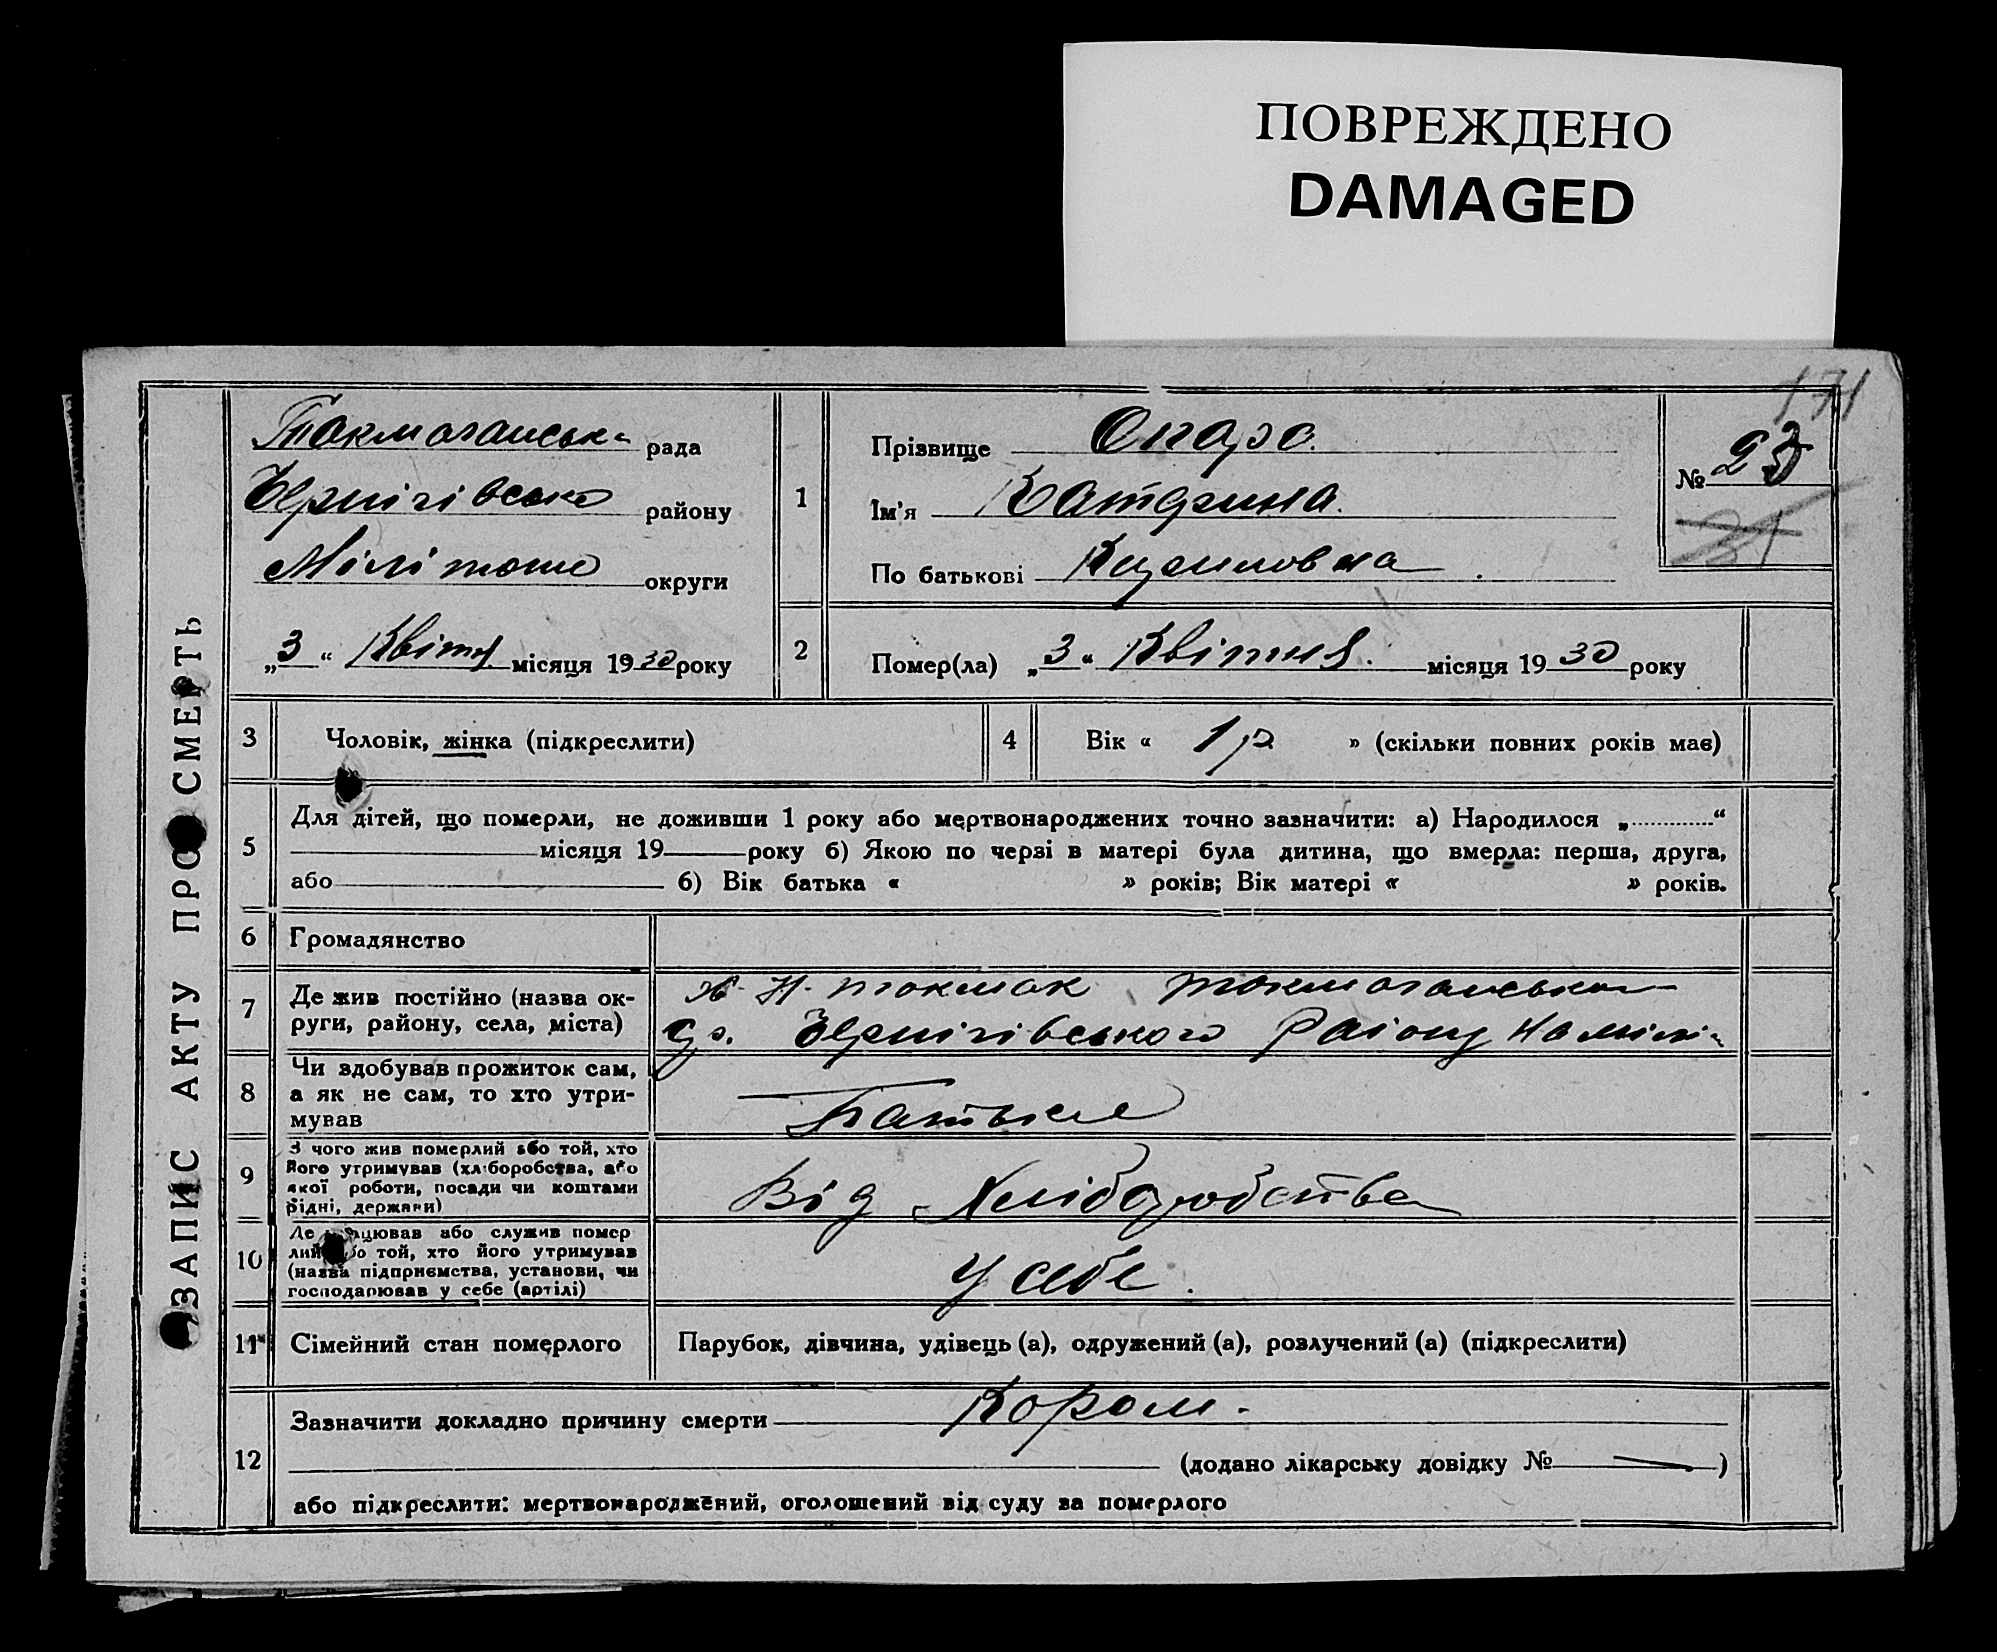 ПОВРЕЖДЕНО
DAMAGED
171
ЗАПИС АКТУ ПРО СМЕРТЬ
Токмачанська рада
Чернігівсько району
Мілітопо округи
„3“ Квітня місяця 1930 року
1
Прізвище Опара.
Ім'я Катерина.
По батькові Кириловна.
№ 23
2
Помер(ла) „3“ Квітня. місяця 1930 року
3
Чоловік, жінка (підкреслити)
4
Вік « 1 р » (скільки повних років має)
5
Для дітей, що померли, не доживши 1 року або мертвонароджених точно зазначити: а) Народилося „ “
місяця 19 року б) Якою по черзі в матері була дитина, що вмерла: перша, друга,
або б) Вік батька « » років; Вік матері « » років.
6
Громадянство
7
Де жив постійно (назва ок-
руги, району, села, міста)
Н. токмак
Чернігівського Раіону
8
Чи здобував прожиток сам,
а як не сам, то хто утри-
мував
Батьки
9
З чого жив померлий або той, хто
його утримував (хліборобства, або
якої роботи, посади чи коштами
рідні, держави)
Від Хліборобства
10
Де працював або служив помер
лий або той, хто його утримував
(назва підприємства, установи, чи
господарював у себе (артілі)
У себе.
11
Сімейний стан померлого
Парубок, дівчина, удівець (а), одружений (а), розлучений (а) (підкреслити)
12
Зазначити докладно причину смерти Кором.
(додано лікарську довідку № — )
або підкреслити: мертвонароджений, оголошений від суду за померлого